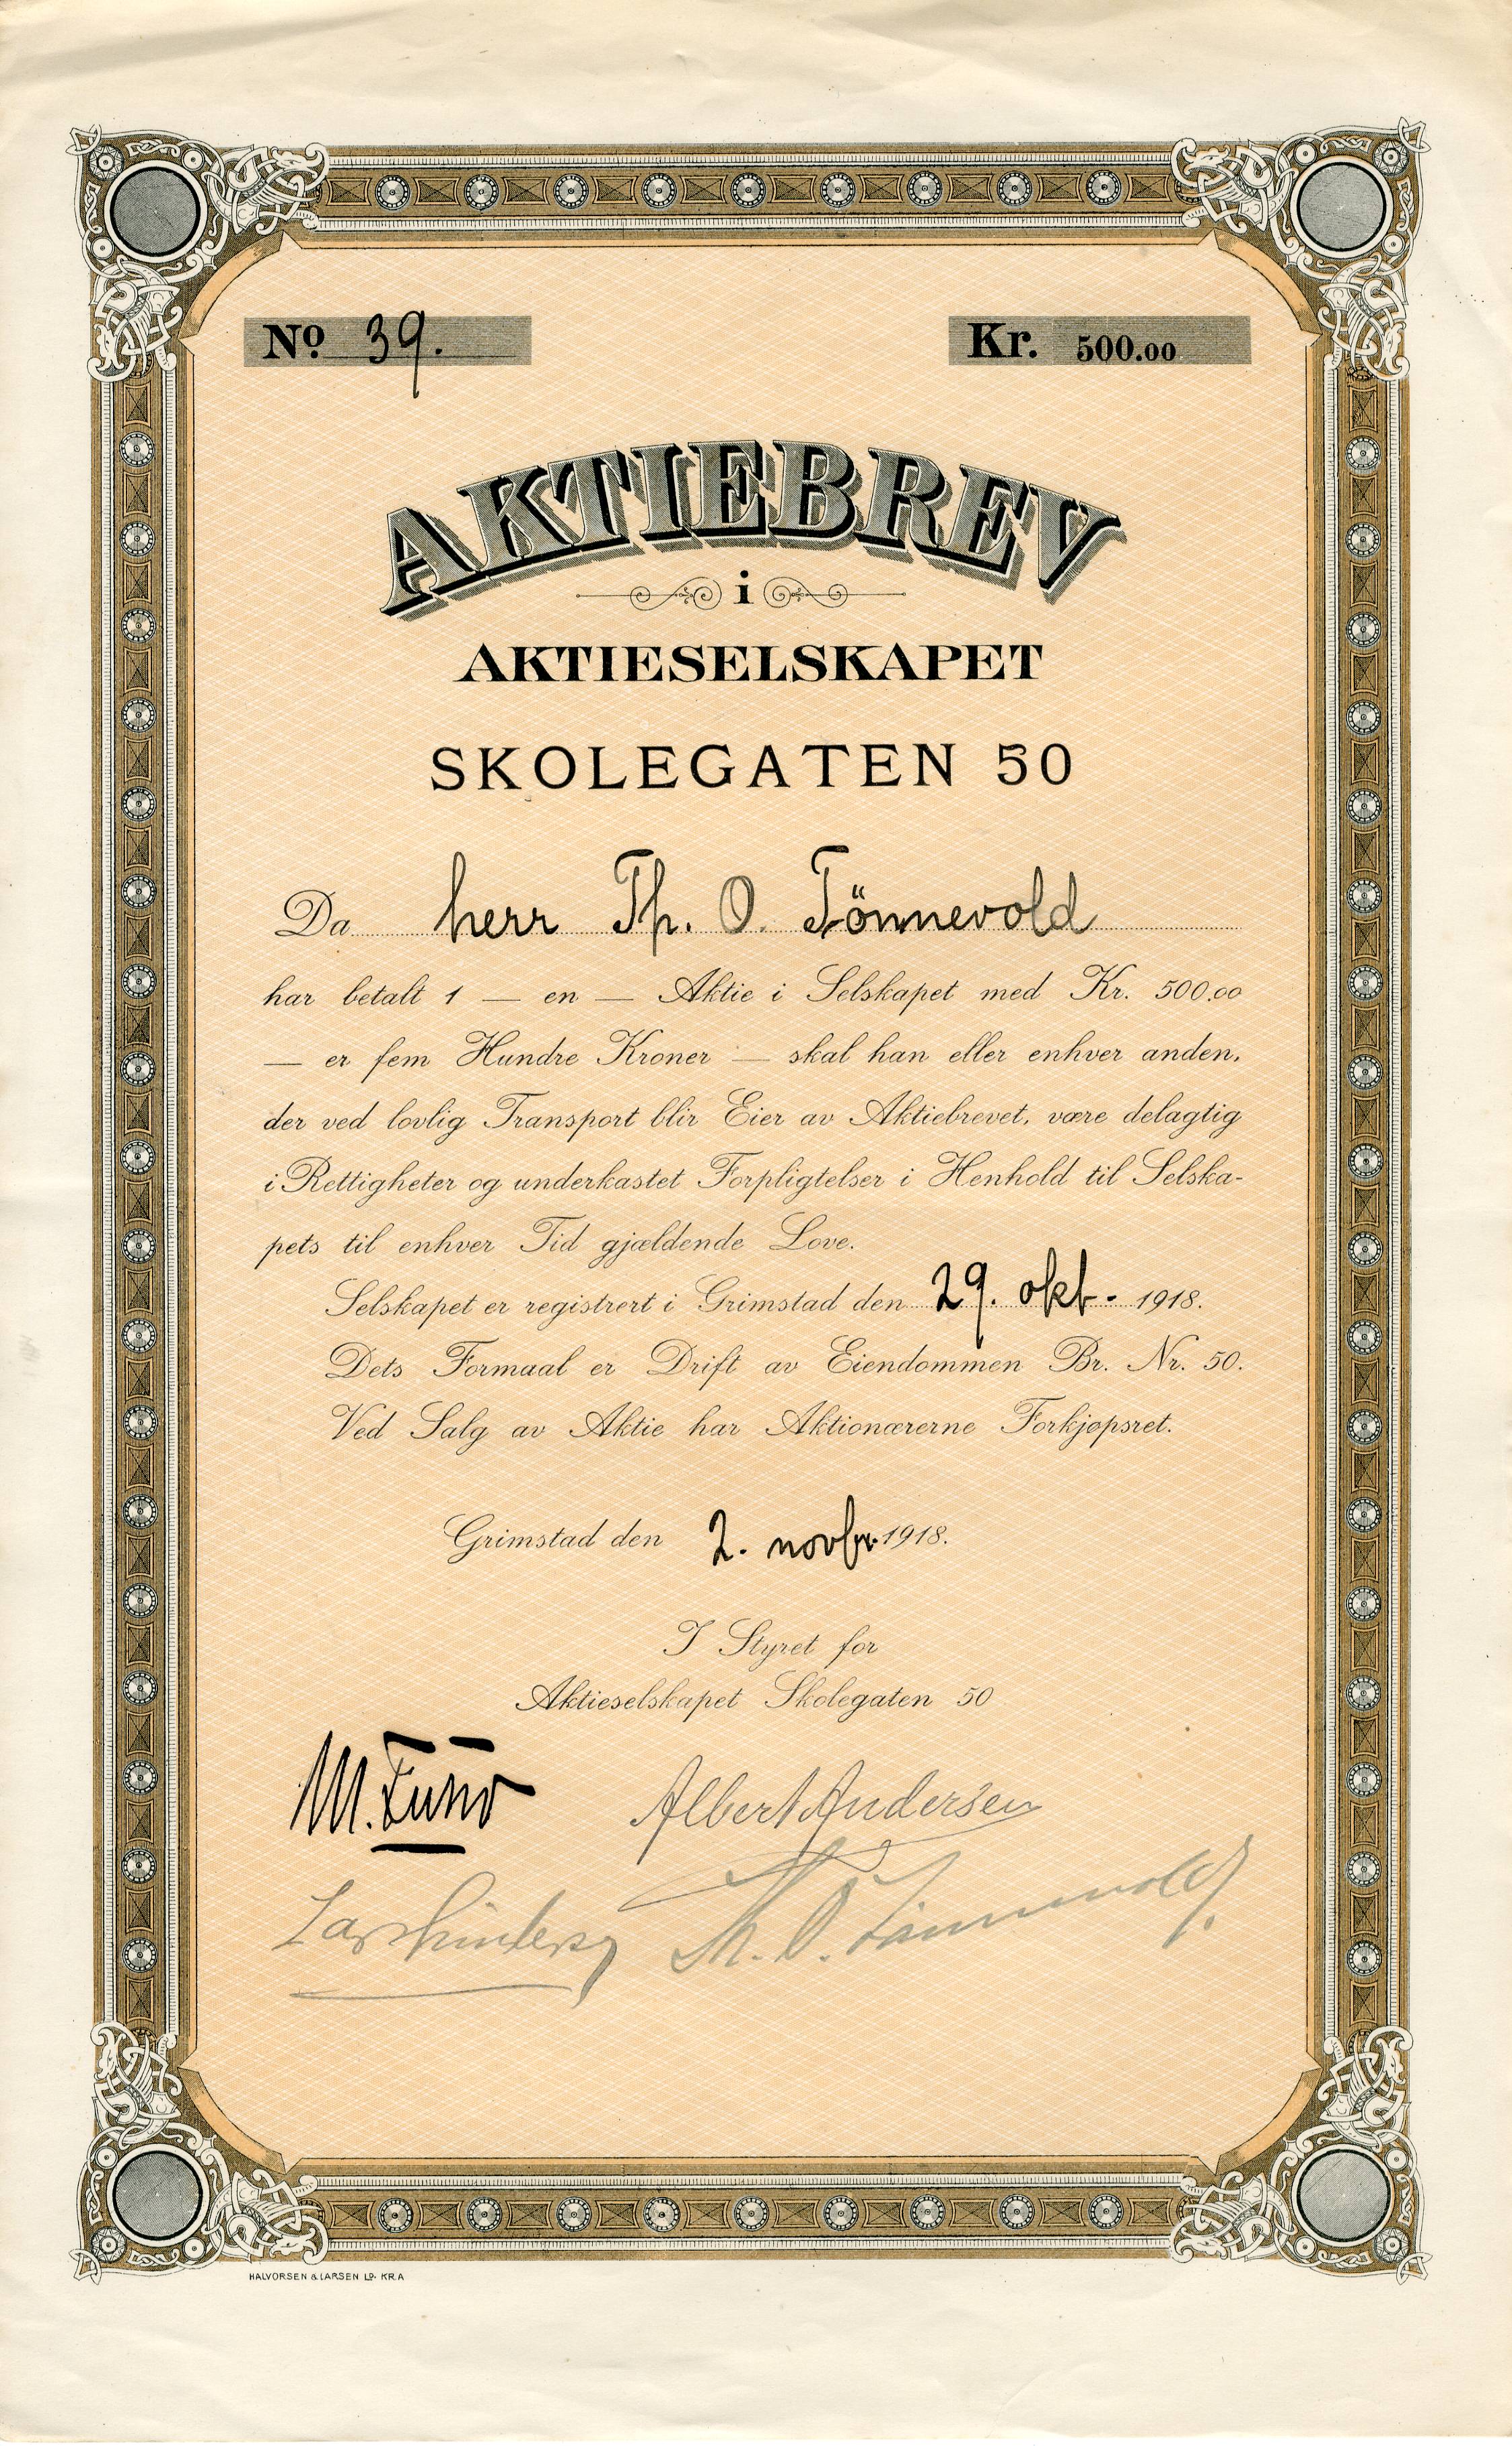 No. 39.
Kr. 500.00
AKTIEBREV
i
AKTIESELSKAPET
SKOLEGATEN 50
Da herr Th. O. Tönnevold
har betalt 1 — en — Aktie i Selskapet med Kr. 500.00
— er fem Hundre Kroner — skal han eller enhver anden,
der ved lovlig Transport blir Eier av Aktiebrevet, være delagtig
i Rettigheter og underkastet Forpligtelser i Henhold til Selska-
pets til enhver Tid gjældende Love.
Selskapet er registrert i Grimstad den 29. okt. 1918.
Dets Formaal er Drift av Eiendommen Br. Nr. 50.
Ved Salg av Aktie har Aktionærerne Forkjøpsret.
Grimstad den 2. novbr. 1918.
I Styret for
Aktieselskapet Skolegaten 50
M. Albert Andersen
Lars Th. O. Tönnevold.
HALVORSEN & LARSEN LD. KR.A